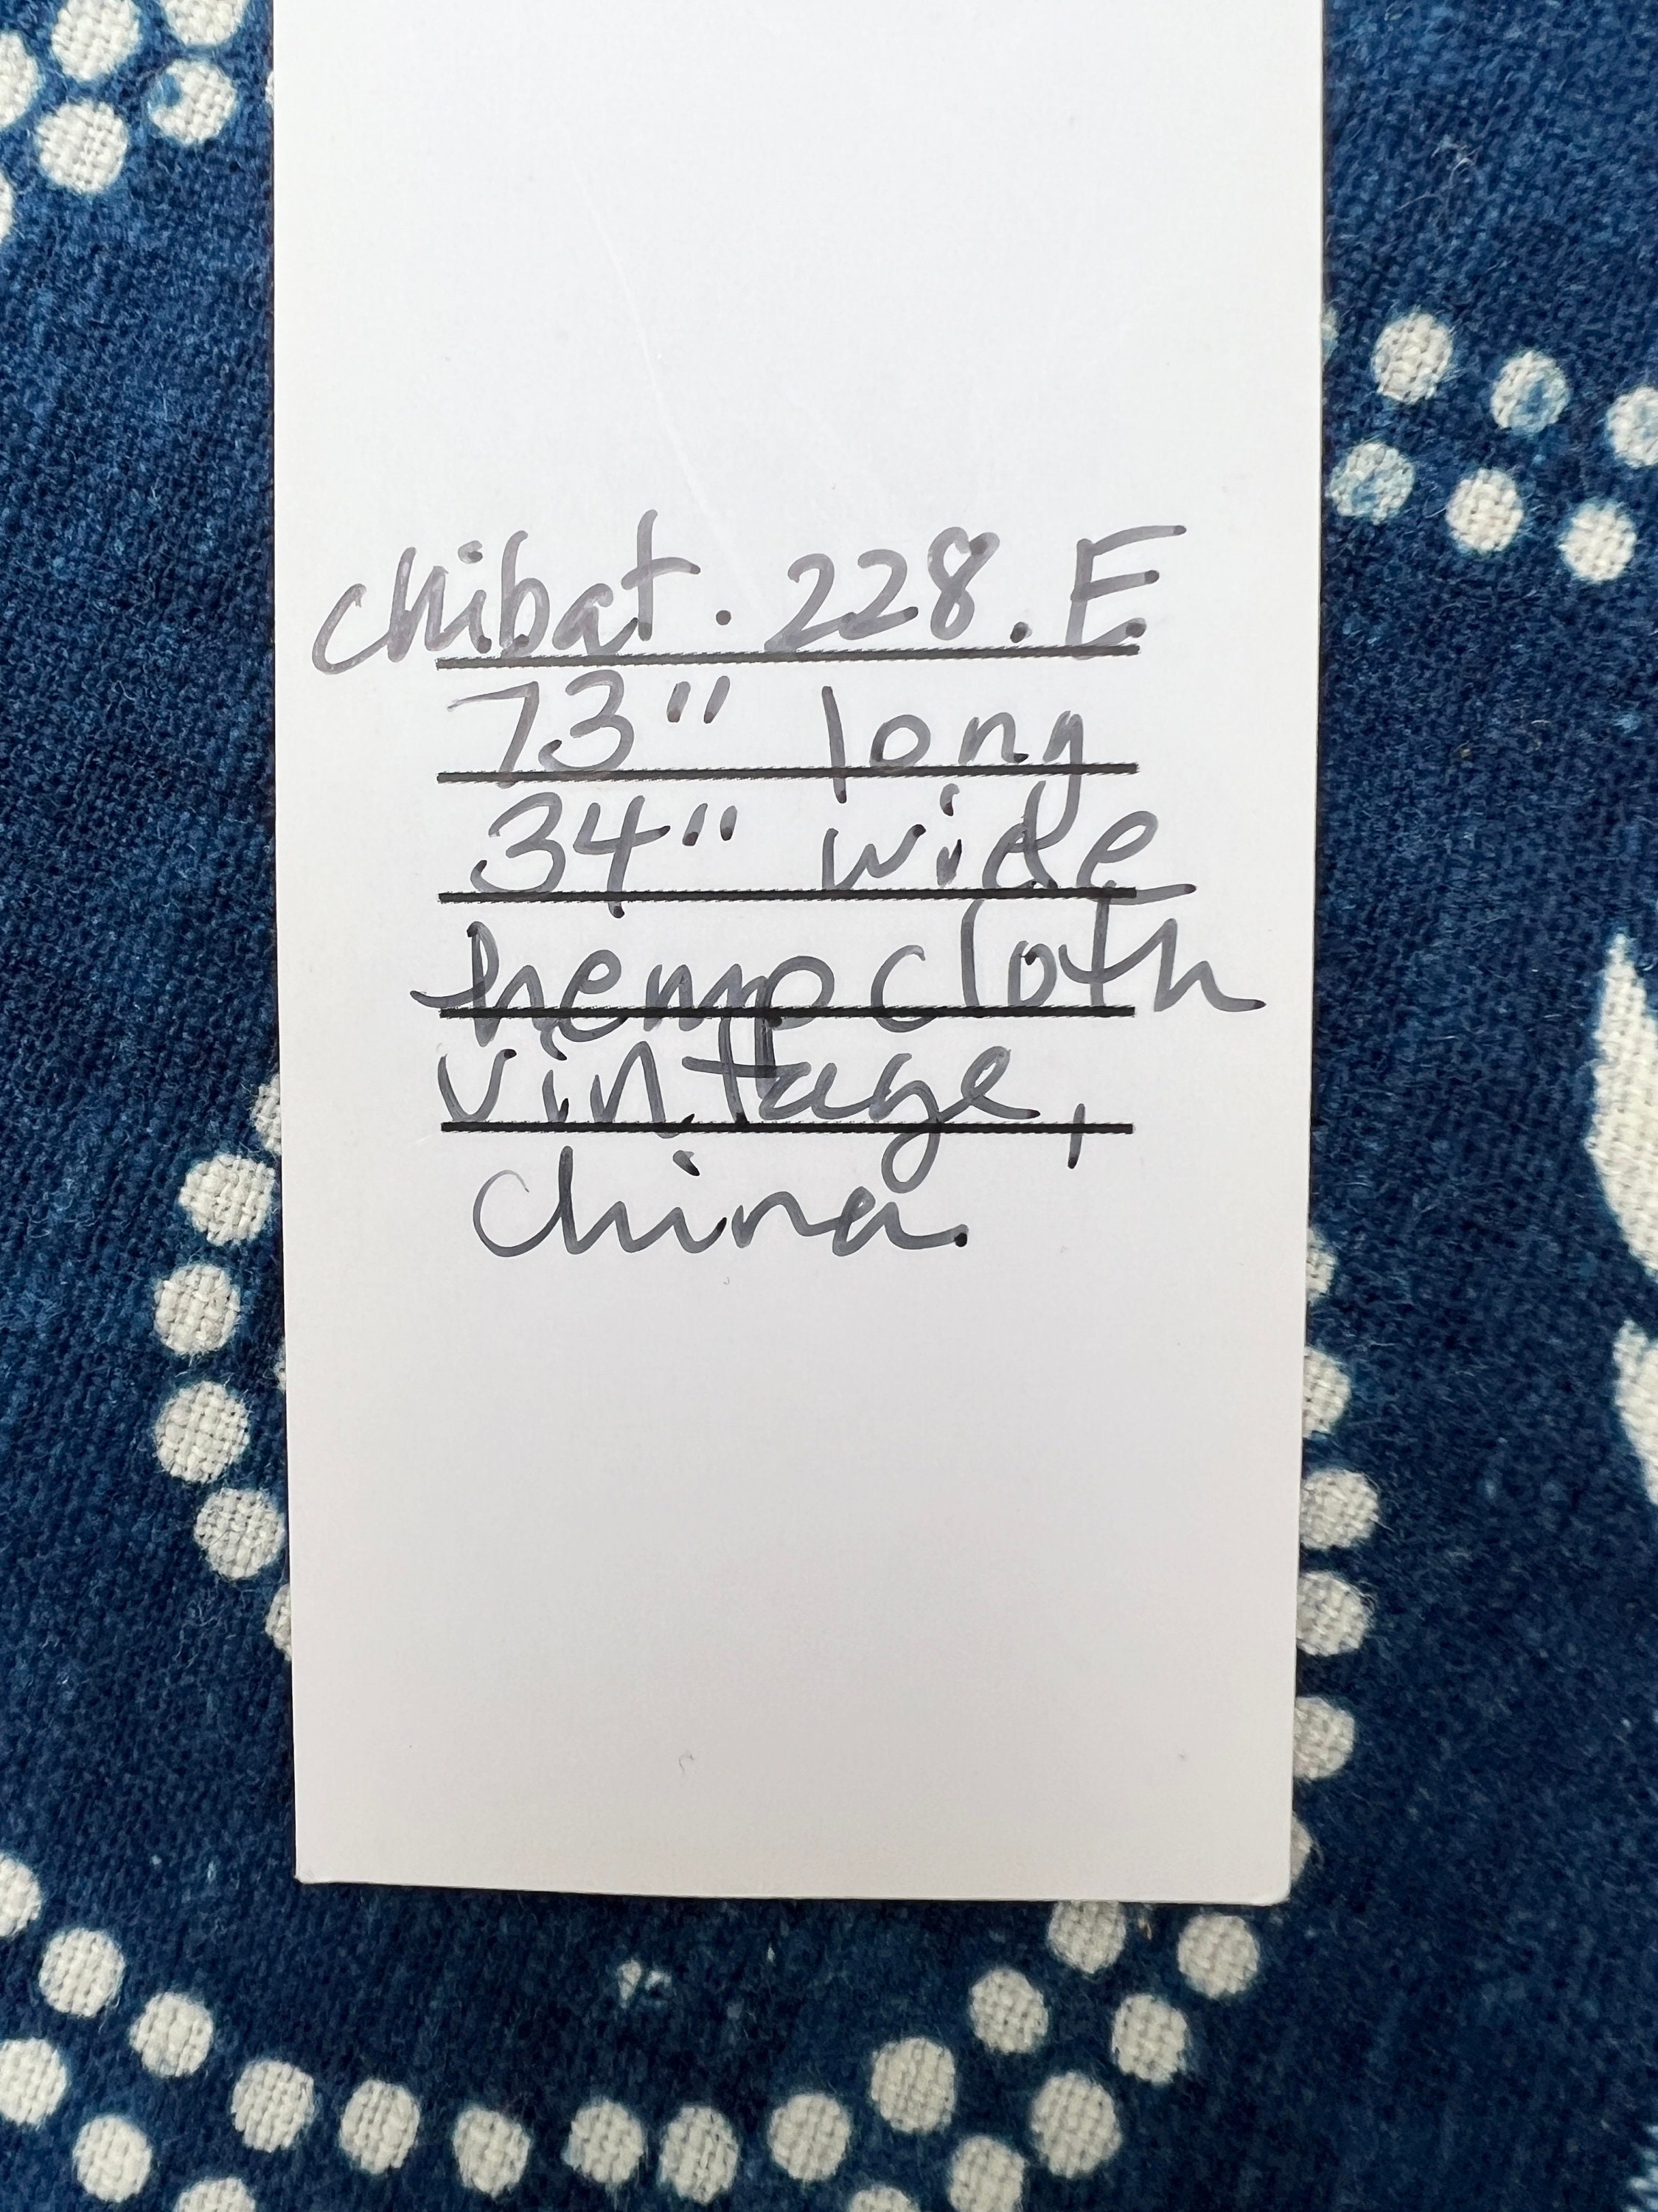 chibat. 228. E
73" long
34" wide
hemp cloth
vintage,
china.